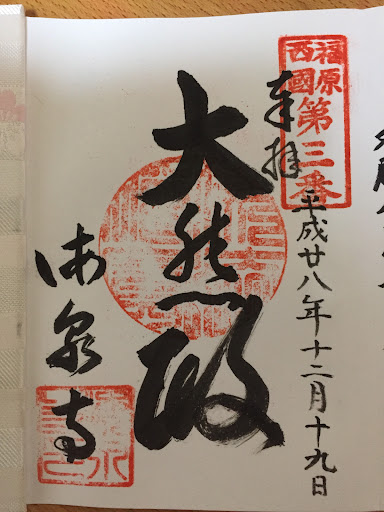 福原
西國
第三番
奉拝
平成廿八年十二月十九日
大悲殿
海泉寺